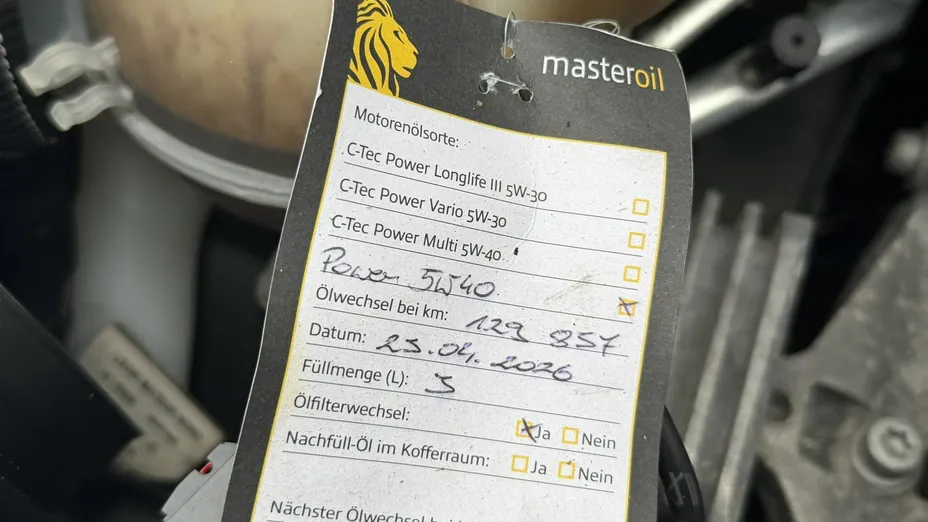 masteroil
Motorenölsorte:
C-Tec Power Longlife III 5W-30
C-Tec Power Vario 5W-30
C-Tec Power Multi 5W-40
Power 5W40
Ölwechsel bei km: 129 857
Datum: 25.04.2026
Füllmenge (L): 5
Ölfilterwechsel: Ja Nein
Nachfüll-Öl im Kofferraum: Ja Nein
Nächster Ölwechsel bei